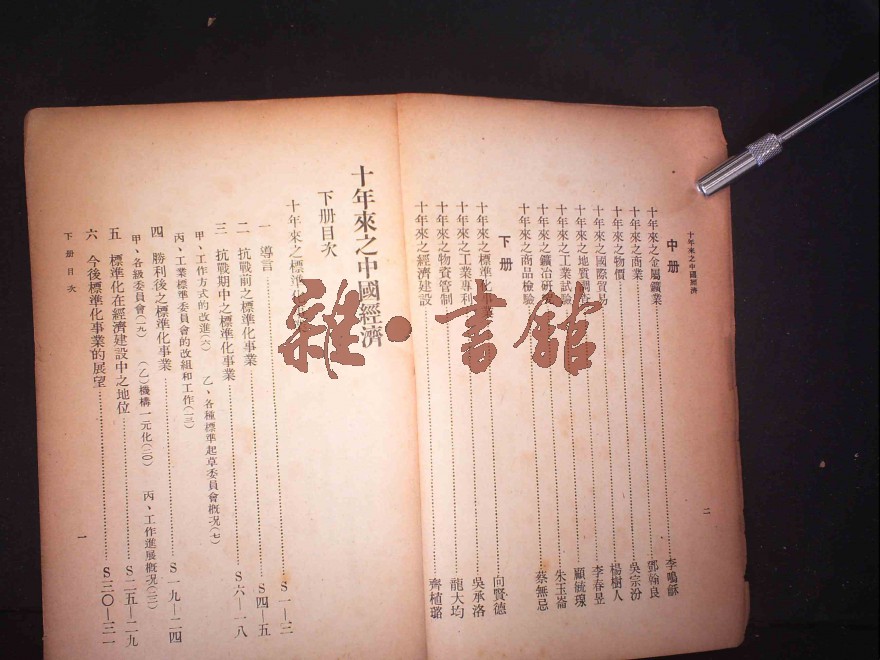 十年來之中國經濟
中册
十年來之金屬鑛業 李鳴龢
十年來之商業 鄧翰良
十年來之物價 吳宗汾
十年來之國際貿易 楊樹人
十年來之地質調查 李春昱
十年來之工業試驗 顧毓瑔
十年來之鑛冶研究 朱玉崙
十年來之商品檢驗 蔡無忌
下册
十年來之標準化事業 向賢德
十年來之工業專利 吳承洛
十年來之物資管制 龍大均
十年來之經濟建設 齊植璐
二
十年來之中國經濟
下册目次
十年來之標準化
一 導言 S一—三
二 抗戰前之標準化事業 S四—五
三 抗戰期中之標準化事業 S六—一八
甲、工作方式的改進(六) 乙、各種標準起草委員會概況(七)
丙、工業標準委員會的改組和工作(一三)
四 勝利後之標準化事業 S一九—二四
甲、各級委員會(一九) (乙)機構一元化(二〇) 丙、工作進展概況(二一)
五 標準化在經濟建設中之地位 S二五—二九
六 今後標準化事業的展望 S三〇—三一
下册目次
一
雜·書館